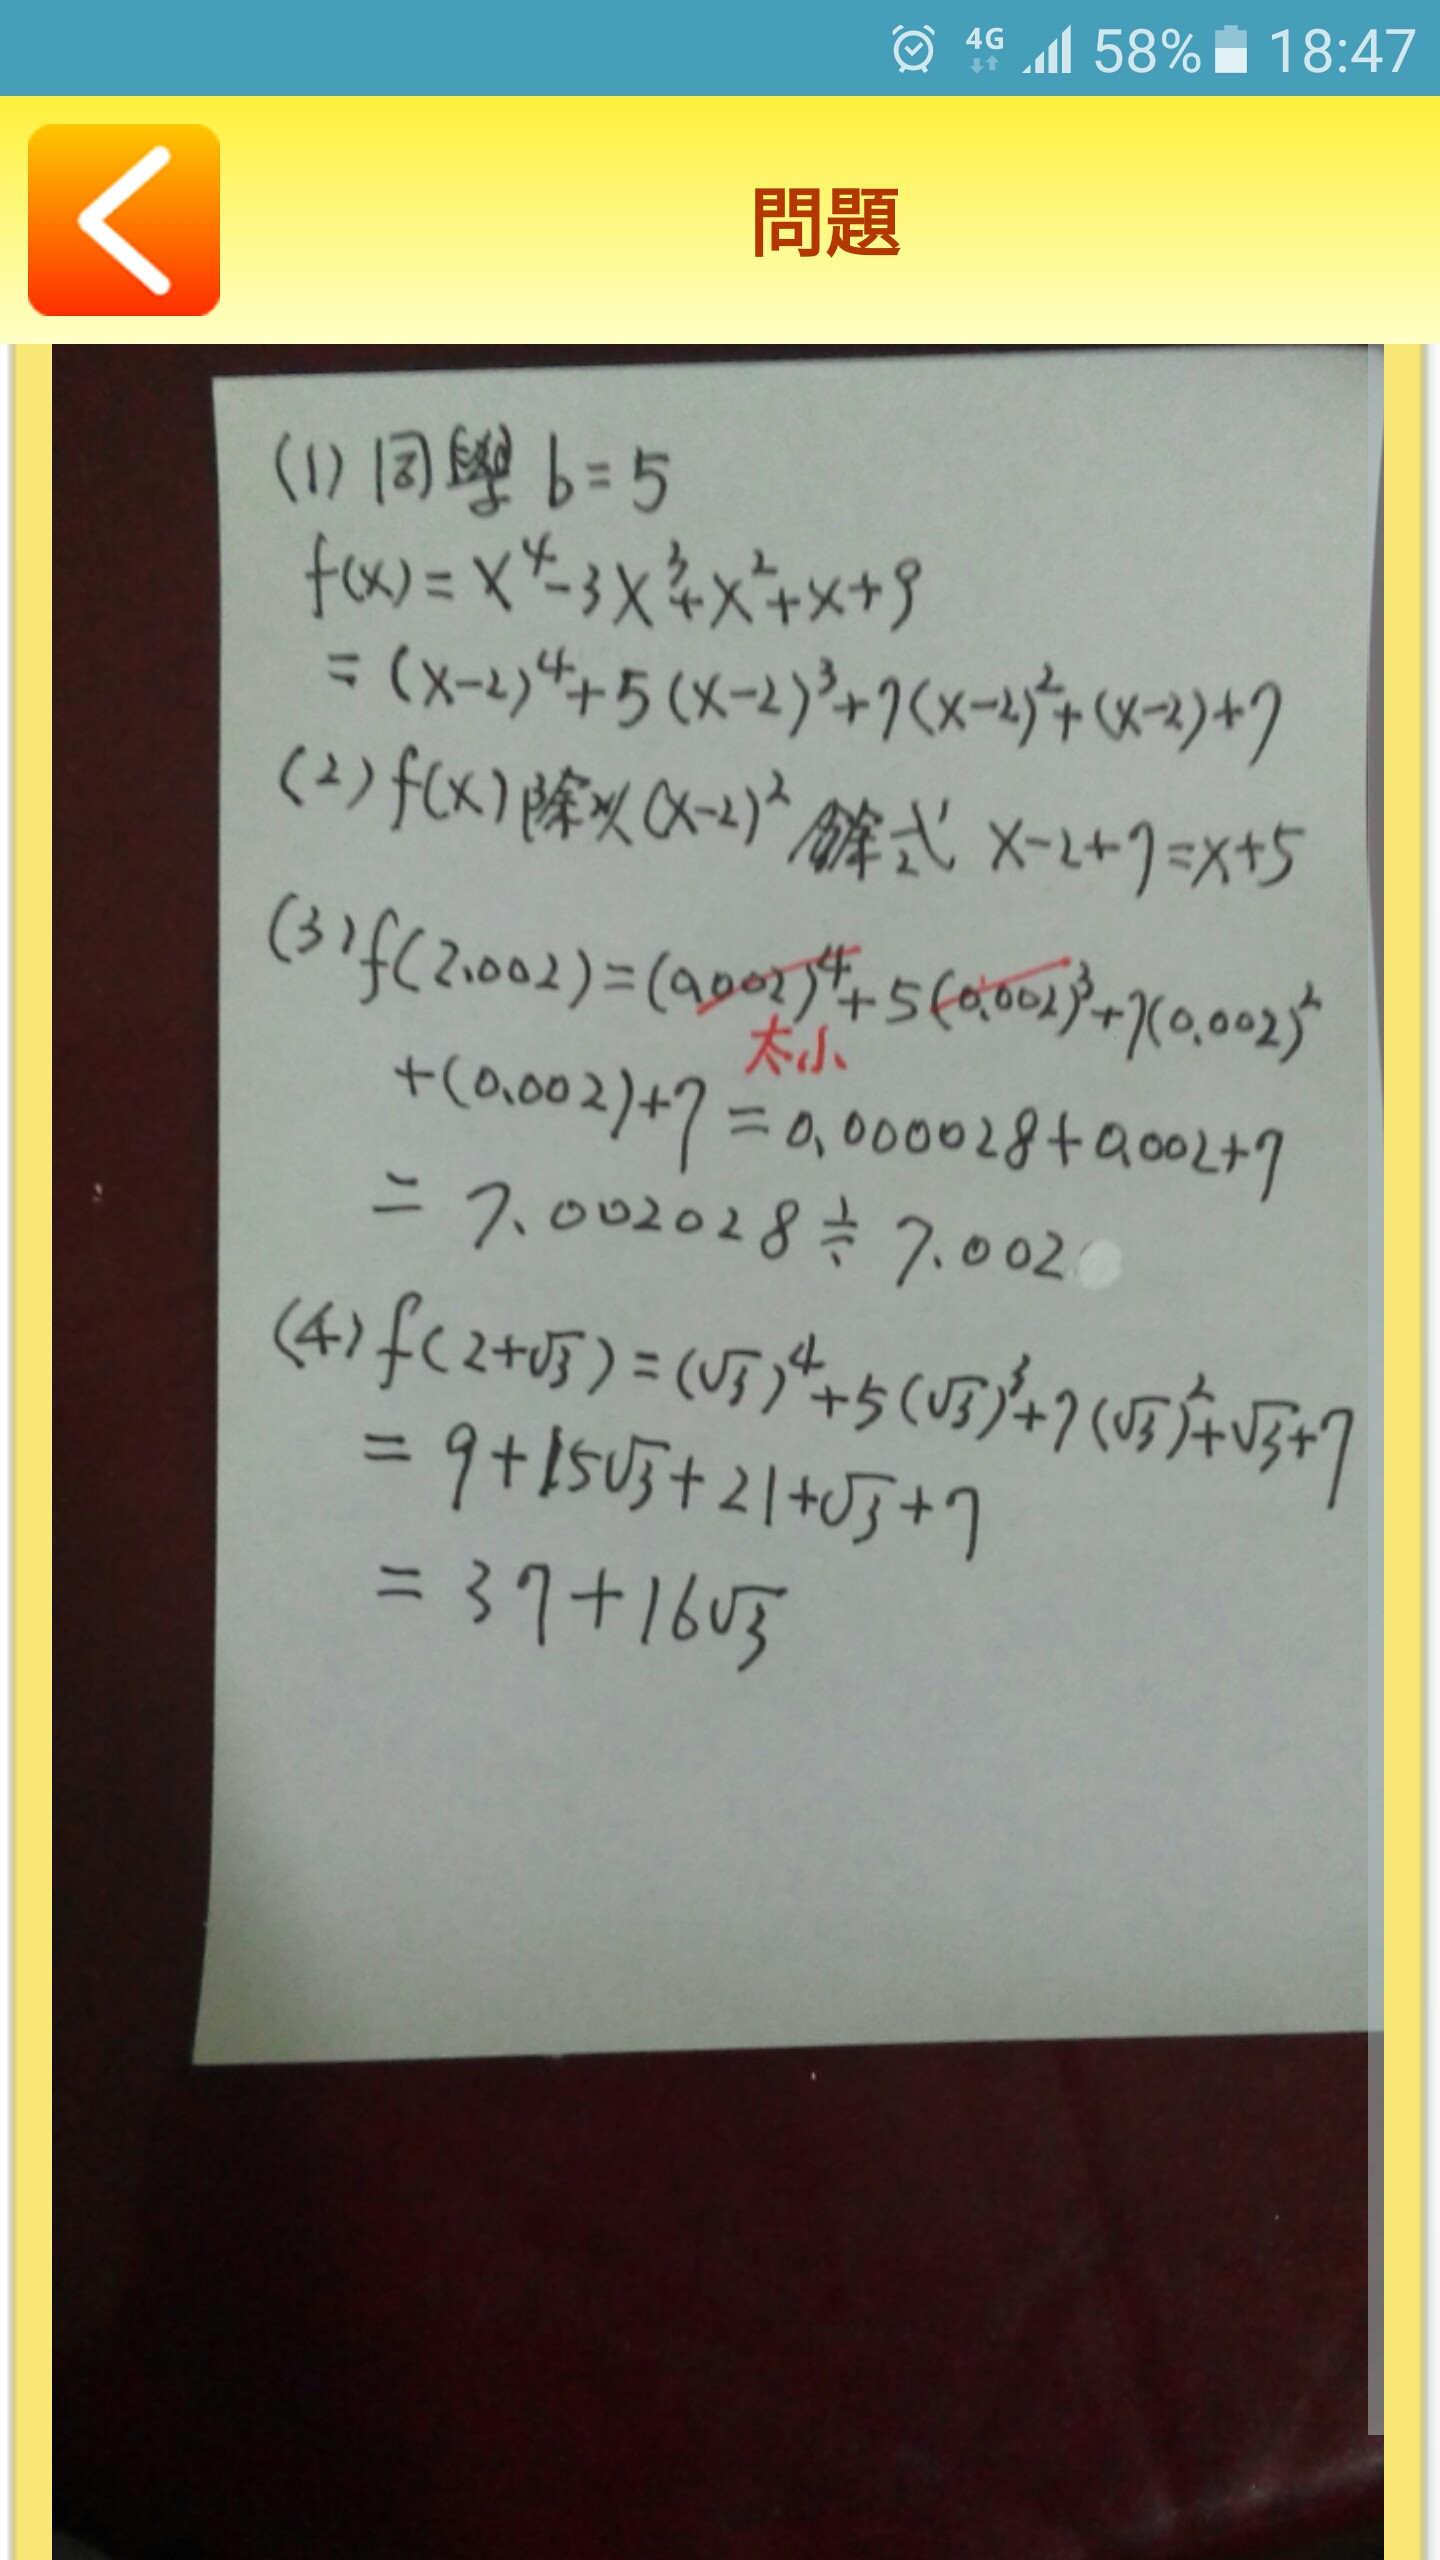 4G 58% 18:47
問題
(1) 同學 b=5
f(x)=x⁴-3x³+x²+x+9
=(x-2)⁴+5(x-2)³+7(x-2)²+(x-2)+7
(2) f(x)除以(x-2)² 餘式 x-2+7=x+5
(3) f(2.002)=(0.002)⁴+5(0.002)³+7(0.002)²
太小
+(0.002)+7=0.000028+0.002+7
=7.002028≑7.002
(4) f(2+√3)=(√3)⁴+5(√3)³+7(√3)²+√3+7
=9+15√3+21+√3+7
=37+16√3